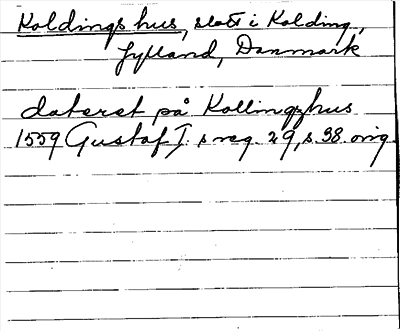 Koldingshus, slott i Kolding,
Jylland, Danmark
daterat på Kollingzhus
1559 Gustaf I:s reg. 29, s. 38. orig.